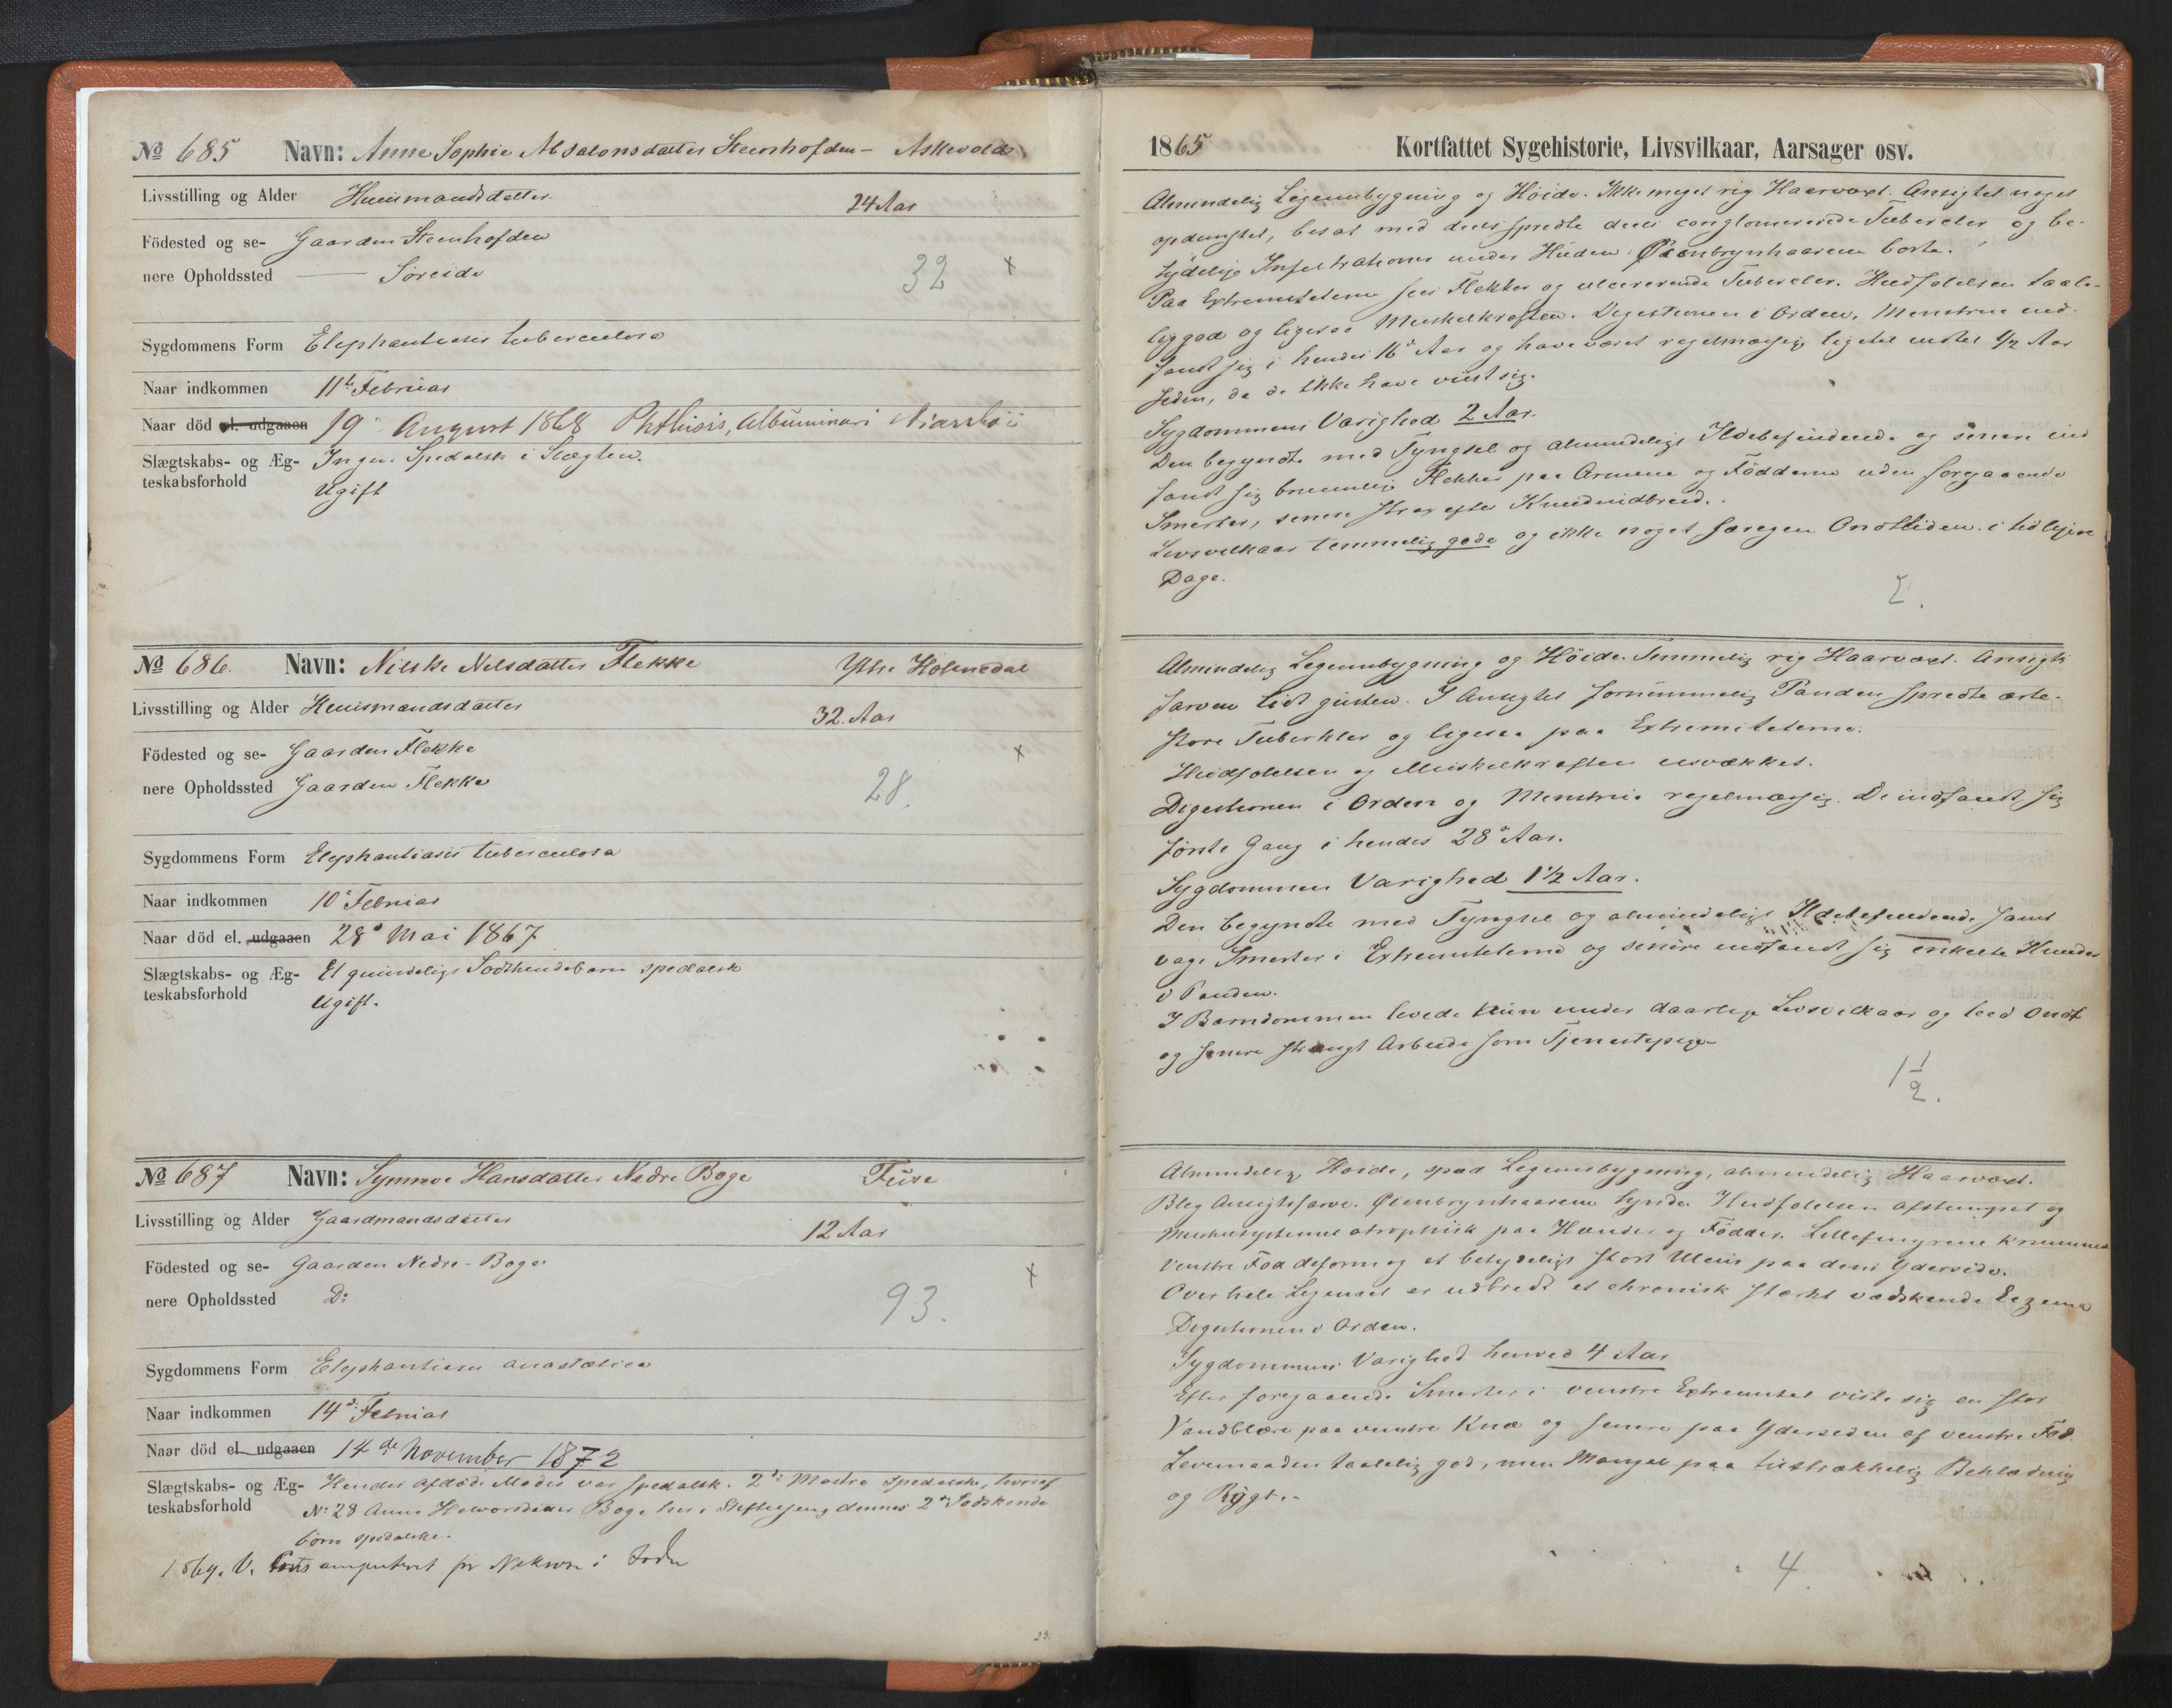 № 685 Navn: Anne Sophie Absalonsdatter Steenhofden - Askevold
Livsstilling og Alder Huusmandsdatter. 24 Aar
Födested og se- Gaarden Steenhofden
nere Opholdssted — Söreide 32 x
Sygdommens Form Elephantiasis tuberculosa
Naar indkommen 11te Februar
Naar död el. udgaaen 19 August 1868 Phthisis, Albuminuri
Slægtskabs- og Æg- Ingen Spedalsk i Slægten.
teskabsforhold Ugift
№ 686. Navn: Nilske Nelsdatter Flekke Ytre Holmedal
Livsstilling og Alder Huusmandsdatter 32. Aar
Födested og se- Gaarden Flekke x
nere Opholdssted Gaarden Flekke 28.
Sygdommens Form Elephantiasis tuberculosa
Naar indkommen 10de Februar
Naar död el. udgaaen 28de Mai 1867
Slægtskabs- og Æg- Et quindeligt Södskendebarn spedalsk
teskabsforhold Ugift.
№ 687 Navn: Synneve Hansdatter Nedre Boge Fuse
Livsstilling og Alder Gaardmandsdatter 12 Aar
Födested og se- Gaarden Nedre-Boge x
nere Opholdssted Do 93.
Sygdommens Form Elephantiasis anæstetica
Naar indkommen 14de Februar
Naar död el. udgaaen 14de November 1872
Slægtskabs- og Æg- Hendes afdöde Moder var spedalsk. 2de Mostre spedalske, hvoraf
teskabsforhold No 28 Anne Boge her i Stiftelsen, dennes 2de Södskende
börn spedalske.
1869. V. amputeret for Nekrose i Foden
23.
1865 Kortfattet Sygehistorie, Livsvilkaar, Aarsager osv.
Almindelig Legemsbygning og Höide. Ikke meget rig Haarvæxt. Ansigtet noget
opdunstet, besat med deels spredte deels conglomererede Tubercler og be-
tydelige Infiltrationer under Huden. Öienbrynhaarene borte.
Paa Extremiteterne sees Flekker og ulcererende Tubercler. Hudfölelsen taale-
lig god og ligesaa Muskelkraften. Digestionen i Orden. Menstrua ind-
fandt sig i hendes 16de Aar og have været regelmæssige ligetil indtil 1/2 Aar
siden, da de ikke have viist sig.
Sygdommens Varighed 2 Aar.
Den begyndte med Tyngsel og almindeligt Ildebefindende og senere ind
fandt sig bruunlige Flekker paa Armene og Födderne uden foregaaende
Smerter, senere strax efter Knudeudbrud.
Livsvilkaar temmelig gode og ikke noget særegen Ondtliden i tidligere
Dage.
2.
Almindelig Legemsbygning og Höide. Temmelig rig Haarvæxt. Ansigts
farven lidt gusten. I Ansigtet fornemmelig Panden spredte ærte-
store Tuberkler og ligesaa paa Extremiteterne.
Hudfölelsen og Muskelkraften usvækket.
Digestionen i Orden og Menstrua regelmæssig. De indfandt sig
förste Gang i hendes 28de Aar.
Sygdommens Varighed 1 1/2 Aar.
Den begyndte med Tyngsel og almindeligt Ildebefindende samt
vage Smerter i Extremiteterne og senere indfandt sig enkelte Knuder
i Panden.
I Barndommen levede hun under daarlige Livsvilkaar og leed Ondt
og senere strengt Arbeide som Tjenestepige
1 1/2.
Almindelig Höide, spæd Legemsbygning, almindelig Haarvæxt.
Bleg Ansigtsfarve. Öienbrynhaarene tynde. Hudfölelsen afstumpet og
Muskelsystemet atrophisk paa Hænder og Födder. Lillefingrene krummede
Venstre Fod deform og et betydeligt stort Ulcus paa dens Yderside.
Over hele Legemet er udbredt et chronisk stærkt vædskende Eczema
Digestionen i Orden.
Sygdommens Varighed henved 4 Aar
Efter foregaaende Smerter i venstre Extremitet viste sig en stor
Vandblære paa venstre Knæ og senere paa Ydersiden af venstre Fod.
Levemaaden taalelig god, men Mangel paa tilstrækkelig Beklædning
og Rögt.
4.